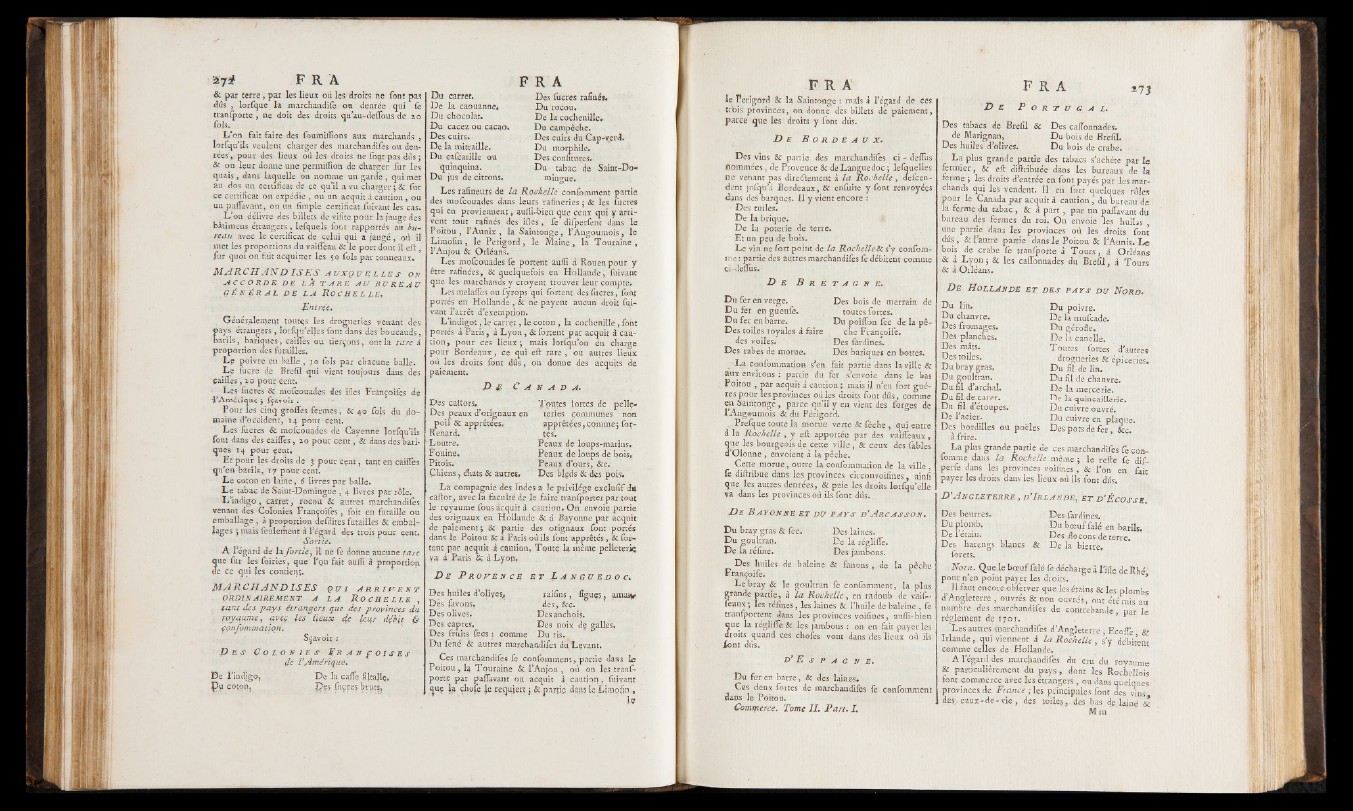 272 FRA
& par terre, par les lieux où les droits ne sont pas
dûs ; lorsque la marchandise ou denrée qui se
transporte, ne doit des droits qu'au-dessous de 20
sols.
L'on fait faire des soumissions aux marchands,
lorsqu'ils veulent charger des marchandises ou den-
rées, pour des lieux où les droits ne sont pas dûs ;
& on leur donne une permission de charger sur les
quais, dans laquelle on nomme un garde, qui met
au dos un certificat de ce qu'il a vu charger ; & sur
ce certificat on expédie, ou un acquit à caution, ou
un passavant, ou un simple certificat suivant les cas.
L'on délivre des billets de visite pour la jauge des
bâtimens étrangers, lesquels sont rapportés au bu-
reau avec le certificat de celui qui a jaugé, où il
met les proportions du vaisseau & le port dont il est,
sur quoi on fait acquitter les 50 sols par tonneaux.
MARCHANDISES AUXQUELLES ON
ACCORDE DE LA TARE AU BUREAU
GÉNÉRAL DE LA ROCHELLE.
Entrée.
Généralement toutes les drogueries venant des
pays étrangers, lorsqu'elles sont dans des boucauds,
barils, bariques, caisses ou tierçons, ont la tare à
proportion des futailles.
Le poivre en balle, 10 sols par chacune balle.
Le sucre de Bresil qui vient toujours dans des
caisses, 20 pour cent.
Les sucres & moscouades des isles Françoises de
l'Amérique ; sçavoir :
Pour les cinq grosses fermes, & 40 sols du do-
maine d'occident, 14 pour cent.
Les sucres & moscouades de Cayenne lorsqu'ils
sont dans des caisses, 20 pour cent, & dans des bari-
ques 14 pour cent.
Et pour les droits de 3 pour cent, tant en caisses
qu'en barils, 17 pour cent.
Le coton en laine, 6 livres par balle.
Le tabac de Saint-Domingue, 4 livres par rôle.
L'indigo, carret, rocou & autres marchandises
venant des Colonies Françoises, soit en futaille ou
emballage, à proportion desdites futailles & embal-
lages ; mais seulement à l'égard des trois pour cent.
Sortie.
A l'égard de la sortie, il ne se donne aucune tare
que sur les soiries, que l'on fait aussi à proportion
de ce qui les contient.
MARCHANDISES QUI ARRIVENT
ORDINAIREMENT A LA ROCHELLE,
tant des pays étrangers que des provinces du
royaume, avec les lieux de leur débit &
consommation.
Sçavoir :
DES COLONIES FRANÇOISES
de l'Amérique.
De l'indigo,
Du coton,
De la casse filtalle,
Des sucres bruts,
FRA
Du carret.
De la caouanne,
Du chocolat.
Du cacez ou cacao.
Des cuirs.
De la mitraille.
Du cascarille ou
quinquina.
Du jus de citrons.
Des sucres rafinés.
Du rocou.
De la cochenille.
Du campêche.
Des cuirs du Cap-verd.
Du morphile.
Des confitures.
Du tabac de Saint-Do-
mingue.
Les rafineurs de la Rochelle consomment partie
des moscouades dans leurs rafineries ; & les sucres
qui en proviennent, aussi-bien que ceux qui y arri-
vent tout rafinés des isles, se dispersent dans le
Poitou, l'Aunix, la Saintonge, l'Angoumois, le
Limosin, le Perigord, le Maine, la Touraine,
l'Anjou & Orléans.
Les moscouades se portent aussi à Rouen pour y
être rafinées, & quelquefois en Hollande, suivant
que les marchands y croyent trouver leur compte.
Les melasses ou syrops qui sortent des sucres, sont
portés en Hollande, & ne payent aucun droit sui-
vant l'arrêt d'exemption.
L'indigot, le carret, le coton, la cochenille, sont
portés à Paris, à Lyon, & sortent par acquit à cau-
tion, pour ces lieux ; mais lorsqu'on en charge
pour Bordeaux, ce qui est rare, ou autres lieux
où les droits sont dûs, on donne des acquits de
paiement.
DE CANADA.
Des castors.
Des peaux d'orignaux en
poil & apprêtées.
Renard.
Loutre.
Fouine,
Pitois.
Chiens, chats & autres.
Toutes sortes de pelle-
teries communes non
apprêtées, comme ; for-
tes.
Peaux de loups-marins.
Peaux de loups de bois,
Peaux d'ours, &c.
Des bleds & des pois.
La compagnie des Indes a le privilége exclusif du
castor, avec la faculté de le faire transporter par tout
le royaume sous acquit à caution. On envoie partie
des orignaux en Hollande & à Bayonne par acquit
de paiement ; & partie des orignaux sont portés
dans le Poitou & à Paris où ils sont apprêtés, & sor-
tent par acquit à caution. Toute la même pelleterie
va à Paris & à Lyon.
DE PROVENCE ET LANGUEDOC.
Des huiles d'olives,
Des savons.
Des olives.
Des capres.
Des fruits secs : comme
raisins, figues, aman-
des, &c.
Des anchois.
Des noix de galles.
Du ris.
Du sené & autres marchandises du Levant.
Ces marchandises se consomment, partie dans le
Poitou, la Touraine & l'Anjou, où on les trans-
porte par passavant ou acquit à caution, suivant
que la chose le requiert ; & partie dans le Limosin,
le
FRA
le Perigord & la Saintonge : mais à l'égard de ces
trois provinces, on donne des billets de paiement,
parce que les droits y sont dûs.
DE BORDEAUX.
Des vins & partie des marchandises ci-dessus
nommées, de Provence & de Languedoc ; lesquelles
ne venant pas directement à la Rochelle, descen-
dent jusqu'à Bordeaux, & ensuite y sont renvoyées
dans des barques. Il y vient encore :
Des toiles.
De la brique.
De la poterie de terre.
Et un peu de bois.
Le vin ne sort point de la Rochelle & s'y consom-
me : partie des autres marchandises se débitent comme
ci-dessus.
DE BRETAGNE.
Du fer en verge.
Du fer en gueuse.
Du fer en barre.
Des toiles royales à faire
des voiles.
Des rabes de morue.
Des bois de merrain de
toutes sortes.
Du poisson sec de la pê-
che Françoise.
Des sardines.
Des bariques en bottes.
La consommation s'en fait partie dans la ville &
aux environs : partie du fer s'envoie dans le bas
Poitou, par acquit à caution ; mais il n'en sort gué-
res pour les provinces où les droits sont dûs, comme
en Saintonge, parce qu'il y en vient des forges de
l'Angoumois & du Périgord.
Presque toute la morue verte & séche, qui entre
à la Rochelle, y est apportée par des vaisseaux,
que les bourgeois de cette ville, & ceux des sables
d'Olonne, envoient à la pêche.
Cette morue, outre la consommation de la ville,
se distribue dans les provinces circonvoisines, ainsi
que les autres denrées, & paie les droits lorsqu'elle
va dans les provinces où ils sont dûs.
DE BAYONNE ET DU PAYS D'ARCASSON.
Du bray gras & sec.
Du goultran.
De la résine.
Des laines.
De la réglisse.
Des jambons.
Des huiles de baleine & fanons, de la pêche
Françoise.
Le bray & le goultran se consomment, la plus
grande partie, à la Rochelle, en radoub de vais-
seaux ; les résines, les laines & l'huile de baleine, se
transportent dans les provinces voisines, aussi-bien
que la réglisse & les jambons : on en fait payer les
droits quand ces choses vont dans des lieux où ils
sont dûs.
D'ESPAGNE.
Du fer en barre, & des laines.
Ces deux sortes de marchandises se consomment
dans le Poitou.
Commerce. Tome II. Part. I.
FRA 273
DE PORTUGAL.
Des tabacs de Bresil &
de Marignan,
Des huiles d'olives.
Des cassonnades.
Du bois de Bresil.
Du bois de crabe.
La plus grande partie des tabacs s'achéte par le
fermier, & est distribuée dans les bureaux de la
ferme ; les droits d'entrée en sont payés par les mar-
chands qui les vendent. Il en sort quelques rôles
pour le Canada par acquit à caution, du bureau de
la ferme du tabac, & à part, par un passavant du
bureau des fermes du roi. On envoie les huiles,
une partie dans les provinces où les droits sont
dûs, & l'autre partie dans le Poitou & l'Aunis. Le
bois de crabe se transporte à Tours, à Orléans
& à Lyon ; & les cassonnades du Bresil, à Tours
& à Orléans.
DE HOLLANDE ET DES PAYS DU NORD.
Du lin.
Du chanvre.
Des fromages.
Des planches.
Des mâts.
Des toiles.
Du bray gras.
Du goultran.
Du fil d'archal.
Du fil de caret.
Du fil d'étoupes.
De l'acier.
Des bordilles ou poêles
à frire.
Du poivre.
De la muscade.
Du gérofle.
De la canelle.
Toutes sortes d'autres
drogueries & épiceries.
Du fil de lin.
Du fil de chanvre.
De la mercerie.
De la quincaillerie.
Du cuivre ouvré.
Du cuivre en plaque.
Des pots de fer, &c.
La plus grande partie de ces marchandises se con-
somme dans la Rochelle même ; le reste se dis-
perse dans les provinces voisines, & l'on en fait
payer les droits dans les lieux où ils sont dûs.
D'ANGLETERRE, D'IRLANDE, ET D'ÉCOSSE.
Des beurres.
Du plomb.
De l'étain.
Des harengs blancs &
sorets.
Des sardines.
Du bœuf salé en barils.
Des flocons de terre.
De la bierre.
Nota. Que le bœuf salé se décharge à l'isle de Rhé,
pour n'en point payer les droits.
Il faut encore observer que les étains & les plombs
d'Angleterre, ouvrés & non ouvrés, ont été mis au
nombre des marchandises de contrebande, par le
réglement de 1701.
Les autres marchandises d'Angleterre, Ecosse, &
Irlande, qui viennent à la Rochelle, s'y débitent
comme celles de Hollande.
A l'égard des marchandises du cru du royaume
& particulièrement du pays, dont les Rochellois
font commerce avec les étrangers, ou dans quelques
provinces de France ; les principales sont des vins,
des eaux-de-vie, des toiles, des bas de laine &
M m